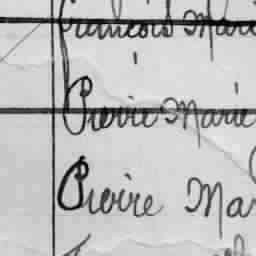 François Marie
Pierre Marie
Pierre Mar